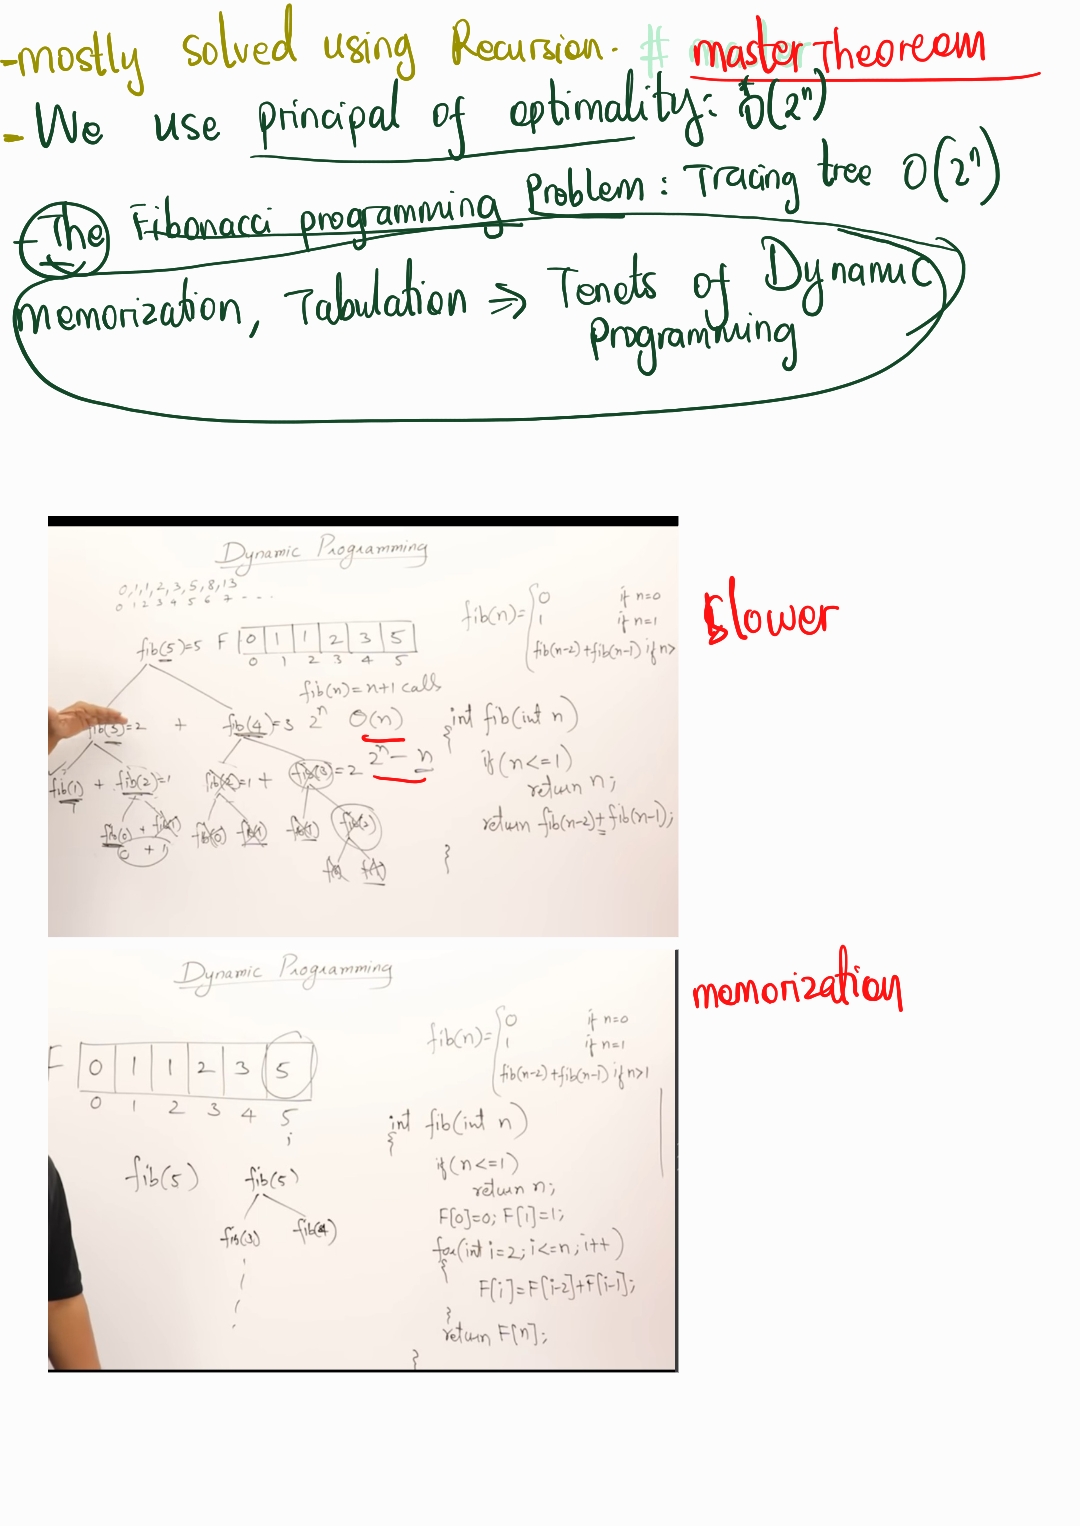 -mostly solved using Recursion. # master Theoreom
- We use principal of optimality: O(2^n)
- The Fibonacci programming Problem: Tracing tree O(2^n)
memorization, Tabulation => Tenets of Dynamic
Programming
Dynamic Programming
0,1,1,2,3,5,8,13
0 1 2 3 4 5 6 7 - - -
fib(n)= 0 if n=0
1 if n=1
fib(n-2)+fib(n-1) if n>
slower
fib(5)=5 F 0 1 1 2 3 5
0 1 2 3 4 5
fib(n)=n+1 calls
fib(3)=2 + fib(4)=3 2^n O(n)
2^n - n
fib(1) + fib(2)=1 fib(2)=1 + fib(3)=2
fib(0) + fib(1) fib(0) fib(1) fib(1) fib(2)
0 + 1
int fib(int n)
{
if(n<=1)
return n;
return fib(n-2)+fib(n-1);
}
Dynamic Programming
memorization
fib(n)= 0 if n=0
1 if n=1
fib(n-2)+fib(n-1) if n>1
F 0 1 1 2 3 5
0 1 2 3 4 5
i
fib(5) fib(5)
fib(3) fib(4)
int fib(int n)
{
if(n<=1)
return n;
F[0]=0; F[1]=1;
for(int i=2; i<=n; i++)
{
F[i]=F[i-2]+F[i-1];
}
return F[n];
}